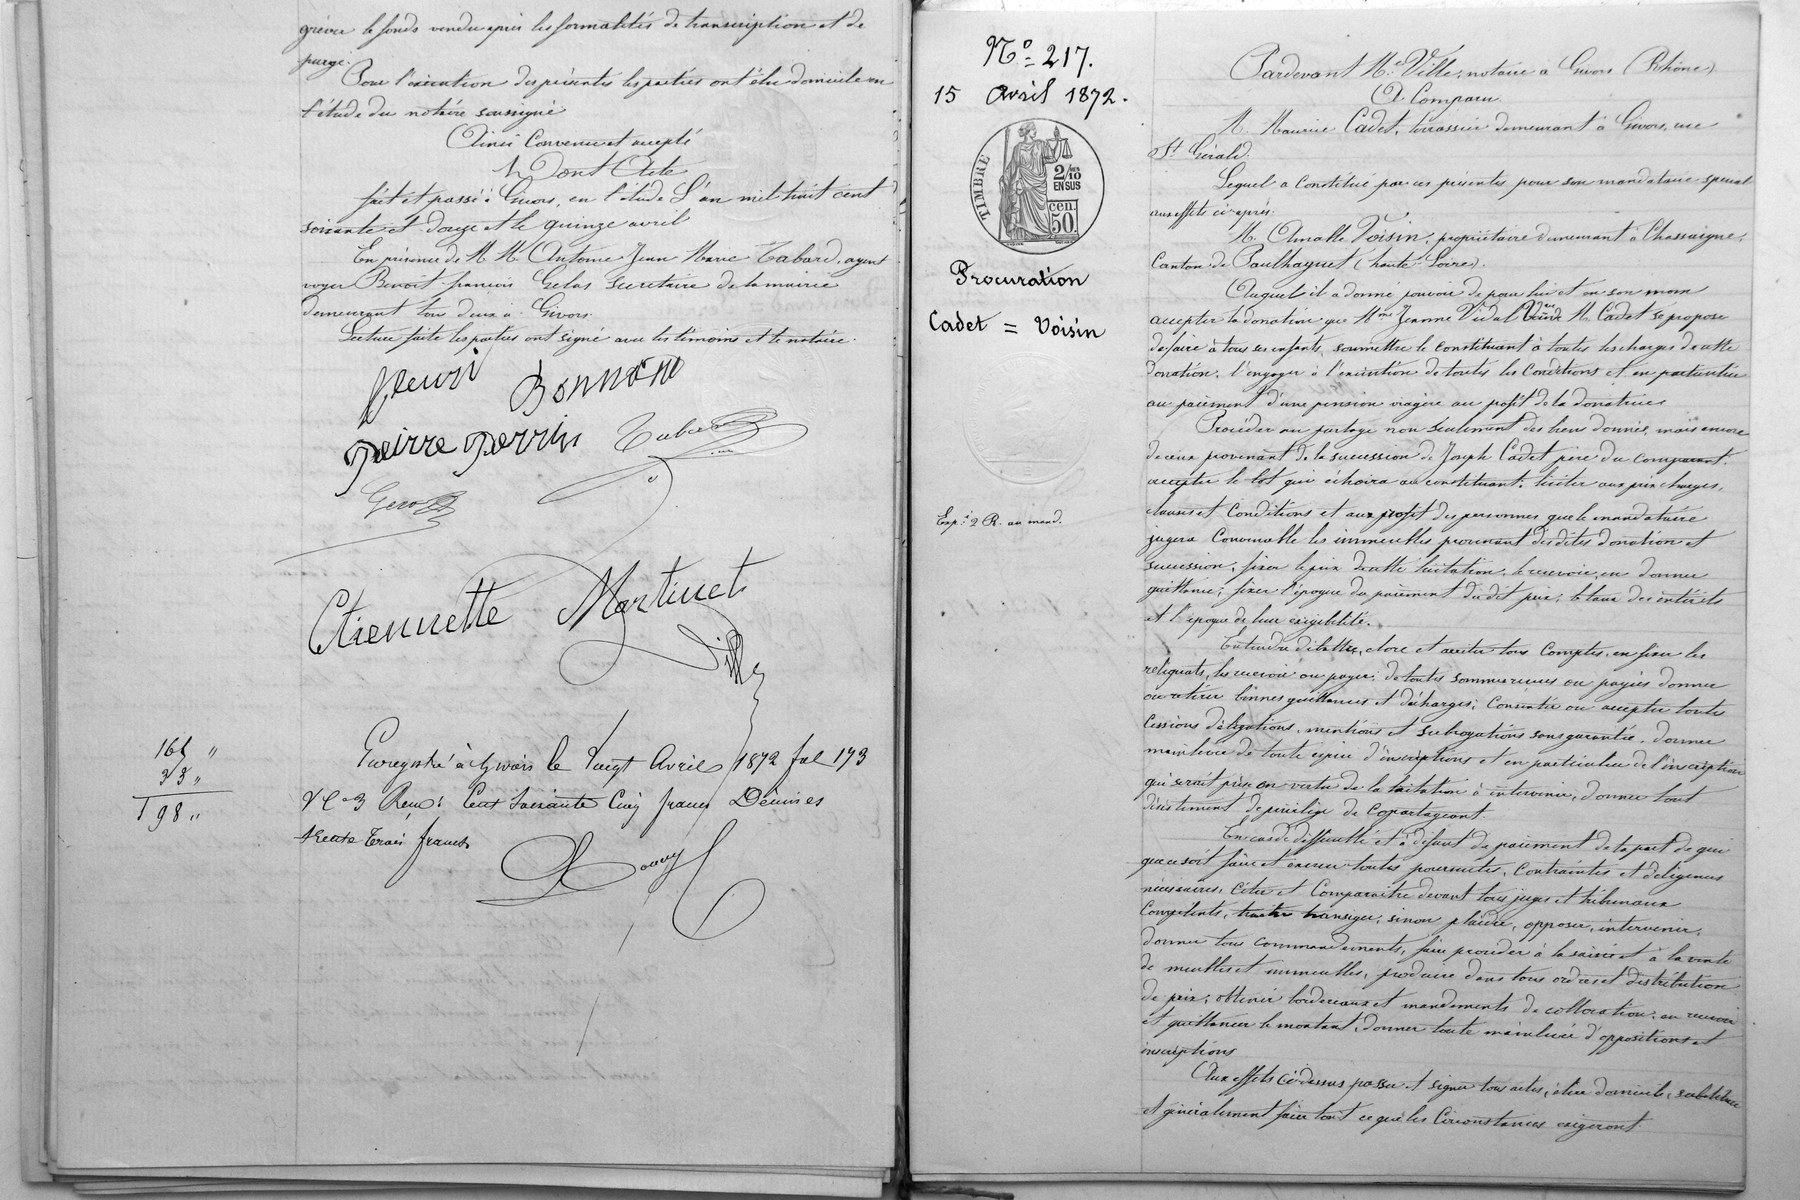 grever le fonds vendu après les formalités de transcription et de
purge.
Pour l'exécution des présentes les parties ont élu domicile en
l'étude du notaire soussigné
Ainsi Convenu et accepté
Dont Acte
fait et passé à Givors, en l'étude L'an mil huit cent
soixante et douze et le quinze avril
En présence de M. M. Antoine Jean Marie Tabard, agent
voyer Benoit françois Gelas secrétaire de la mairie
demeurant tous deux à Givors.
Lecture faite les parties ont signé avec les témoins et le notaire.
fleuri Bonnand
Peirre Perrin Tabard
Etiennette Martinet
Ville
165 "
33 "
198 "
Enregistré à Givors le Vingt Avril 1872 fol 173
Vº C 3 Reçu: Cent Soixante Cinq francs Décimes
trente Trois francs
Nº 217.
15 Avril 1872.
TIMBRE
2/10
EN SUS
cen.
50.
Procuration
Cadet = Voisin
Exp. 2 R. au mand.
Pardevant Me Ville, notaire à Givors (Rhône)
A Comparu
M. Maurice Cadet, terrassier demeurant à Givors, rue
St Gérald.
Lequel a Constitué par ces présentes pour son mandataire spécial
aux effets ci-après:
M. Amable Voisin, propriétaire demeurant à Chassaigne,
Canton de Paulhaguet (haute Loire).
Auquel il a donné pouvoir de pour lui et en son nom
accepter la donation que Mme Jeanne Vidal Veuve M. Cadet se propose
de faire à tous ses enfants, soumettre le constituant à toutes les charges de cette
donation, l'engager à l'exécution de toutes les Conditions et en particulier
au paiement d'une pension viagère au profit de la donatrice
Procéder au partage non seulement des biens donnés, mais encore
de ceux provenant de la succession de Joseph Cadet père du Comparant.
accepter le lot qui échoira au constituant, liciter aux prix charges,
clauses et Conditions et aux profit des personnes que le mandataire
jugera Convenable les immeubles provenant desdites donation et
succession, fixer le prix de cette licitation, le recevoir, en donner
quittance; fixer l'époque du paiement du dit prix, le taux des intérêts
et l'époque de leur exigibilité.
Entendre débattre, clore et arrêter tous Comptes, en fixer les
reliquats, les recevoir ou payer; de toutes sommes reçues ou payées donner
ou retirer bonnes quittances et décharges; Consentir ou accepter toutes
Cessions délégations, mentions et subrogations sans garantie. donner
mainlevée de toute espèce d'inscriptions et en particulier de l'inscription
qui serait prise en vertu de la licitation à intervenir, donner tout
désistement de privilège de Copartageant.
En cas de difficulté et à défaut de paiement de la part de qui
que ce soit faire et exercer toutes poursuites, Contraintes et diligences
nécessaires, Citer et Comparaître devant tous juges et tribunaux
Compétents, traiter transiger, sinon plaider, opposer, intervenir,
donner tous commandements, faire procéder à la saisie et à la vente
de meubles et immeubles, produire dans tous ordres et distribution
de prix; obtenir bordereaux et mandements de collocation, en recevoir
et quittancer le montant, donner toute mainlevée d'oppositions et
inscriptions
Aux effets Ci-dessus passer et signer tous actes, élire domicile, substituer
et généralement faire tout ce que les Circonstances exigeront.